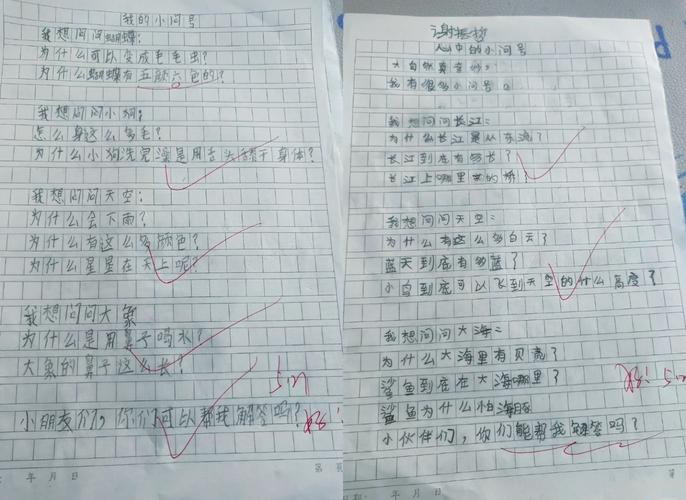 我的小问号
我想问问蝴蝶:
为什么可以变成毛毛虫?
为什么蝴蝶有五颜六色的?
我想问问小狗:
怎么身这么多毛?
为什么小狗洗完澡是用舌头舔干身体?
我想问问天空:
为什么会下雨?
为什么有这么多颜色?
为什么星星在天上呢?
我想问问大象
为什么是用鼻子喝水?
大象的鼻子这么长?
小朋友们,你们可以帮我解答吗?
好!
年 月 日
第 页
谢
心中的小问号
大自然真奇妙:
我有很多小问号。
我想问问长江:
为什么长江是从东流?
长江到底有多长?
长江上哪里来的桥?
我想问问天空:
为什么有这么多白天?
蓝天到底有多蓝?
小鸟到底可以飞到天空的什么高度?
我想问问大海:
为什么大海里有贝壳?
鲨鱼到底在大海哪里?
鲨鱼为什么怕海豚
小伙伴们,你们能帮我解答吗?
好!
年 月 日
第